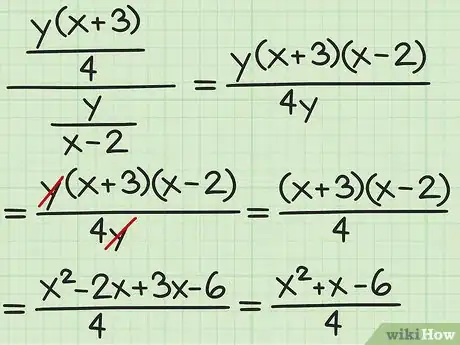 y(x+3)
4
y
x-2
= y(x+3)(x-2)
4y
= y(x+3)(x-2)
4y
= (x+3)(x-2)
4
= x²-2x+3x-6
4
= x²+x-6
4
wikiHow